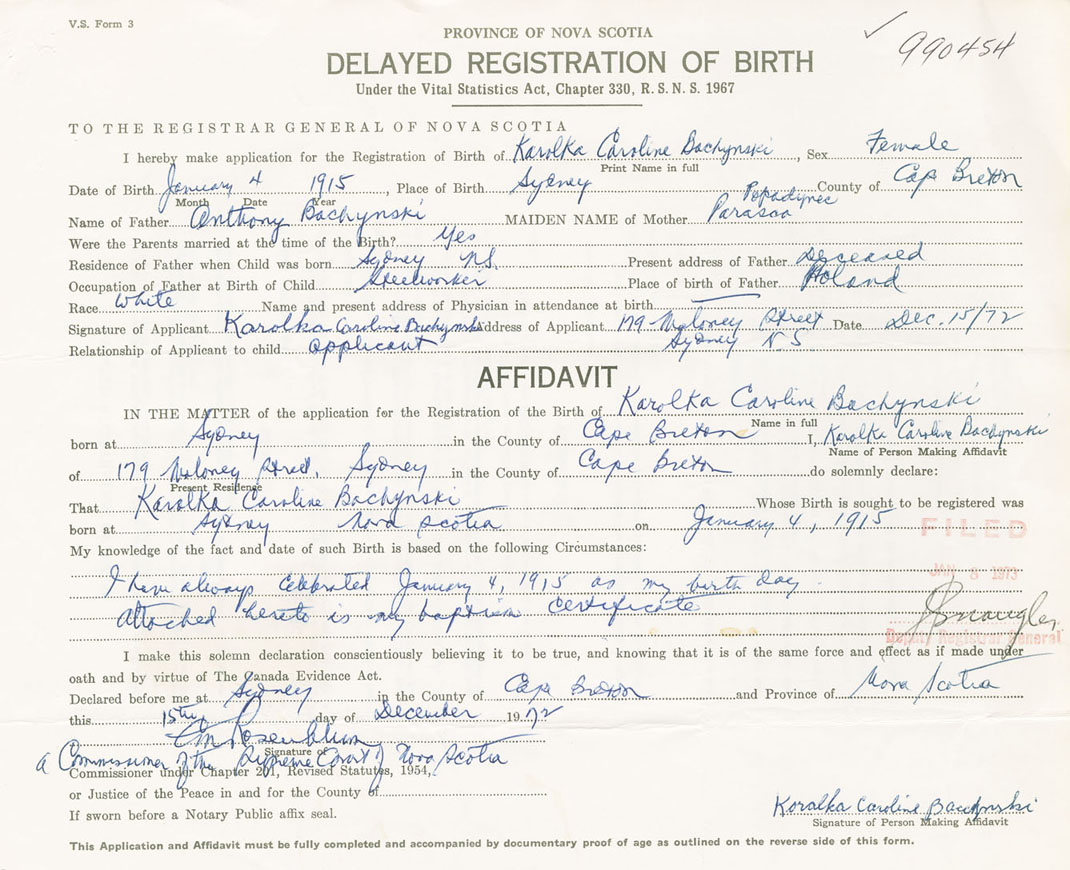 V.S. Form 3
990454
PROVINCE OF NOVA SCOTIA
DELAYED REGISTRATION OF BIRTH
Under the Vital Statistics Act, Chapter 330, R. S. N. S. 1967
TO THE REGISTRAR GENERAL OF NOVA SCOTIA
I hereby make application for the Registration of Birth of Karolka Caroline Bachynski, Sex Female
Print Name in full
Date of Birth January 4 1915, Place of Birth Sydney County of Cap Breton
Month Date Year
Name of Father Anthony Bachynski MAIDEN NAME of Mother Parasca Popadynec
Were the Parents married at the time of the Birth? Yes
Residence of Father when Child was born Sydney N.S. Present address of Father Deceased
Occupation of Father at Birth of Child Steelworker Place of birth of Father Poland
Race White Name and present address of Physician in attendance at birth
Signature of Applicant Karolka Caroline Bachynski Address of Applicant 179 Maloney Street Date Dec. 15/72
Relationship of Applicant to child applicant Sydney N S
AFFIDAVIT
IN THE MATTER of the application for the Registration of the Birth of Karolka Caroline Bachynski
Name in full
born at Sydney in the County of Cape Breton I, Karolka Caroline Bachynski
Name of Person Making Affidavit
of 179 Maloney Street, Sydney in the County of Cape Breton do solemnly declare:
Present Residence
That Karolka Caroline Bachynski Whose Birth is sought to be registered was
born at Sydney Nova Scotia on January 4, 1915
FILED
My knowledge of the fact and date of such Birth is based on the following Circumstances:
JAN 8 1973
I have always celebrated January 4, 1915 as my birth day
Attached hereto is my baptism certificate
Deputy Registrar General
I make this solemn declaration conscientiously believing it to be true, and knowing that it is of the same force and effect as if made under
oath and by virtue of The Canada Evidence Act.
Declared before me at Sydney in the County of Cape Breton and Province of Nova Scotia
this 15th day of December 1972
Rosenblum
Signature of
a Commissioner of the Supreme Court of Nova Scotia
Commissioner under Chapter 201, Revised Statutes, 1954,
or Justice of the Peace in and for the County of
If sworn before a Notary Public affix seal.
Koralka Caroline Bachynski
Signature of Person Making Affidavit
This Application and Affidavit must be fully completed and accompanied by documentary proof of age as outlined on the reverse side of this form.